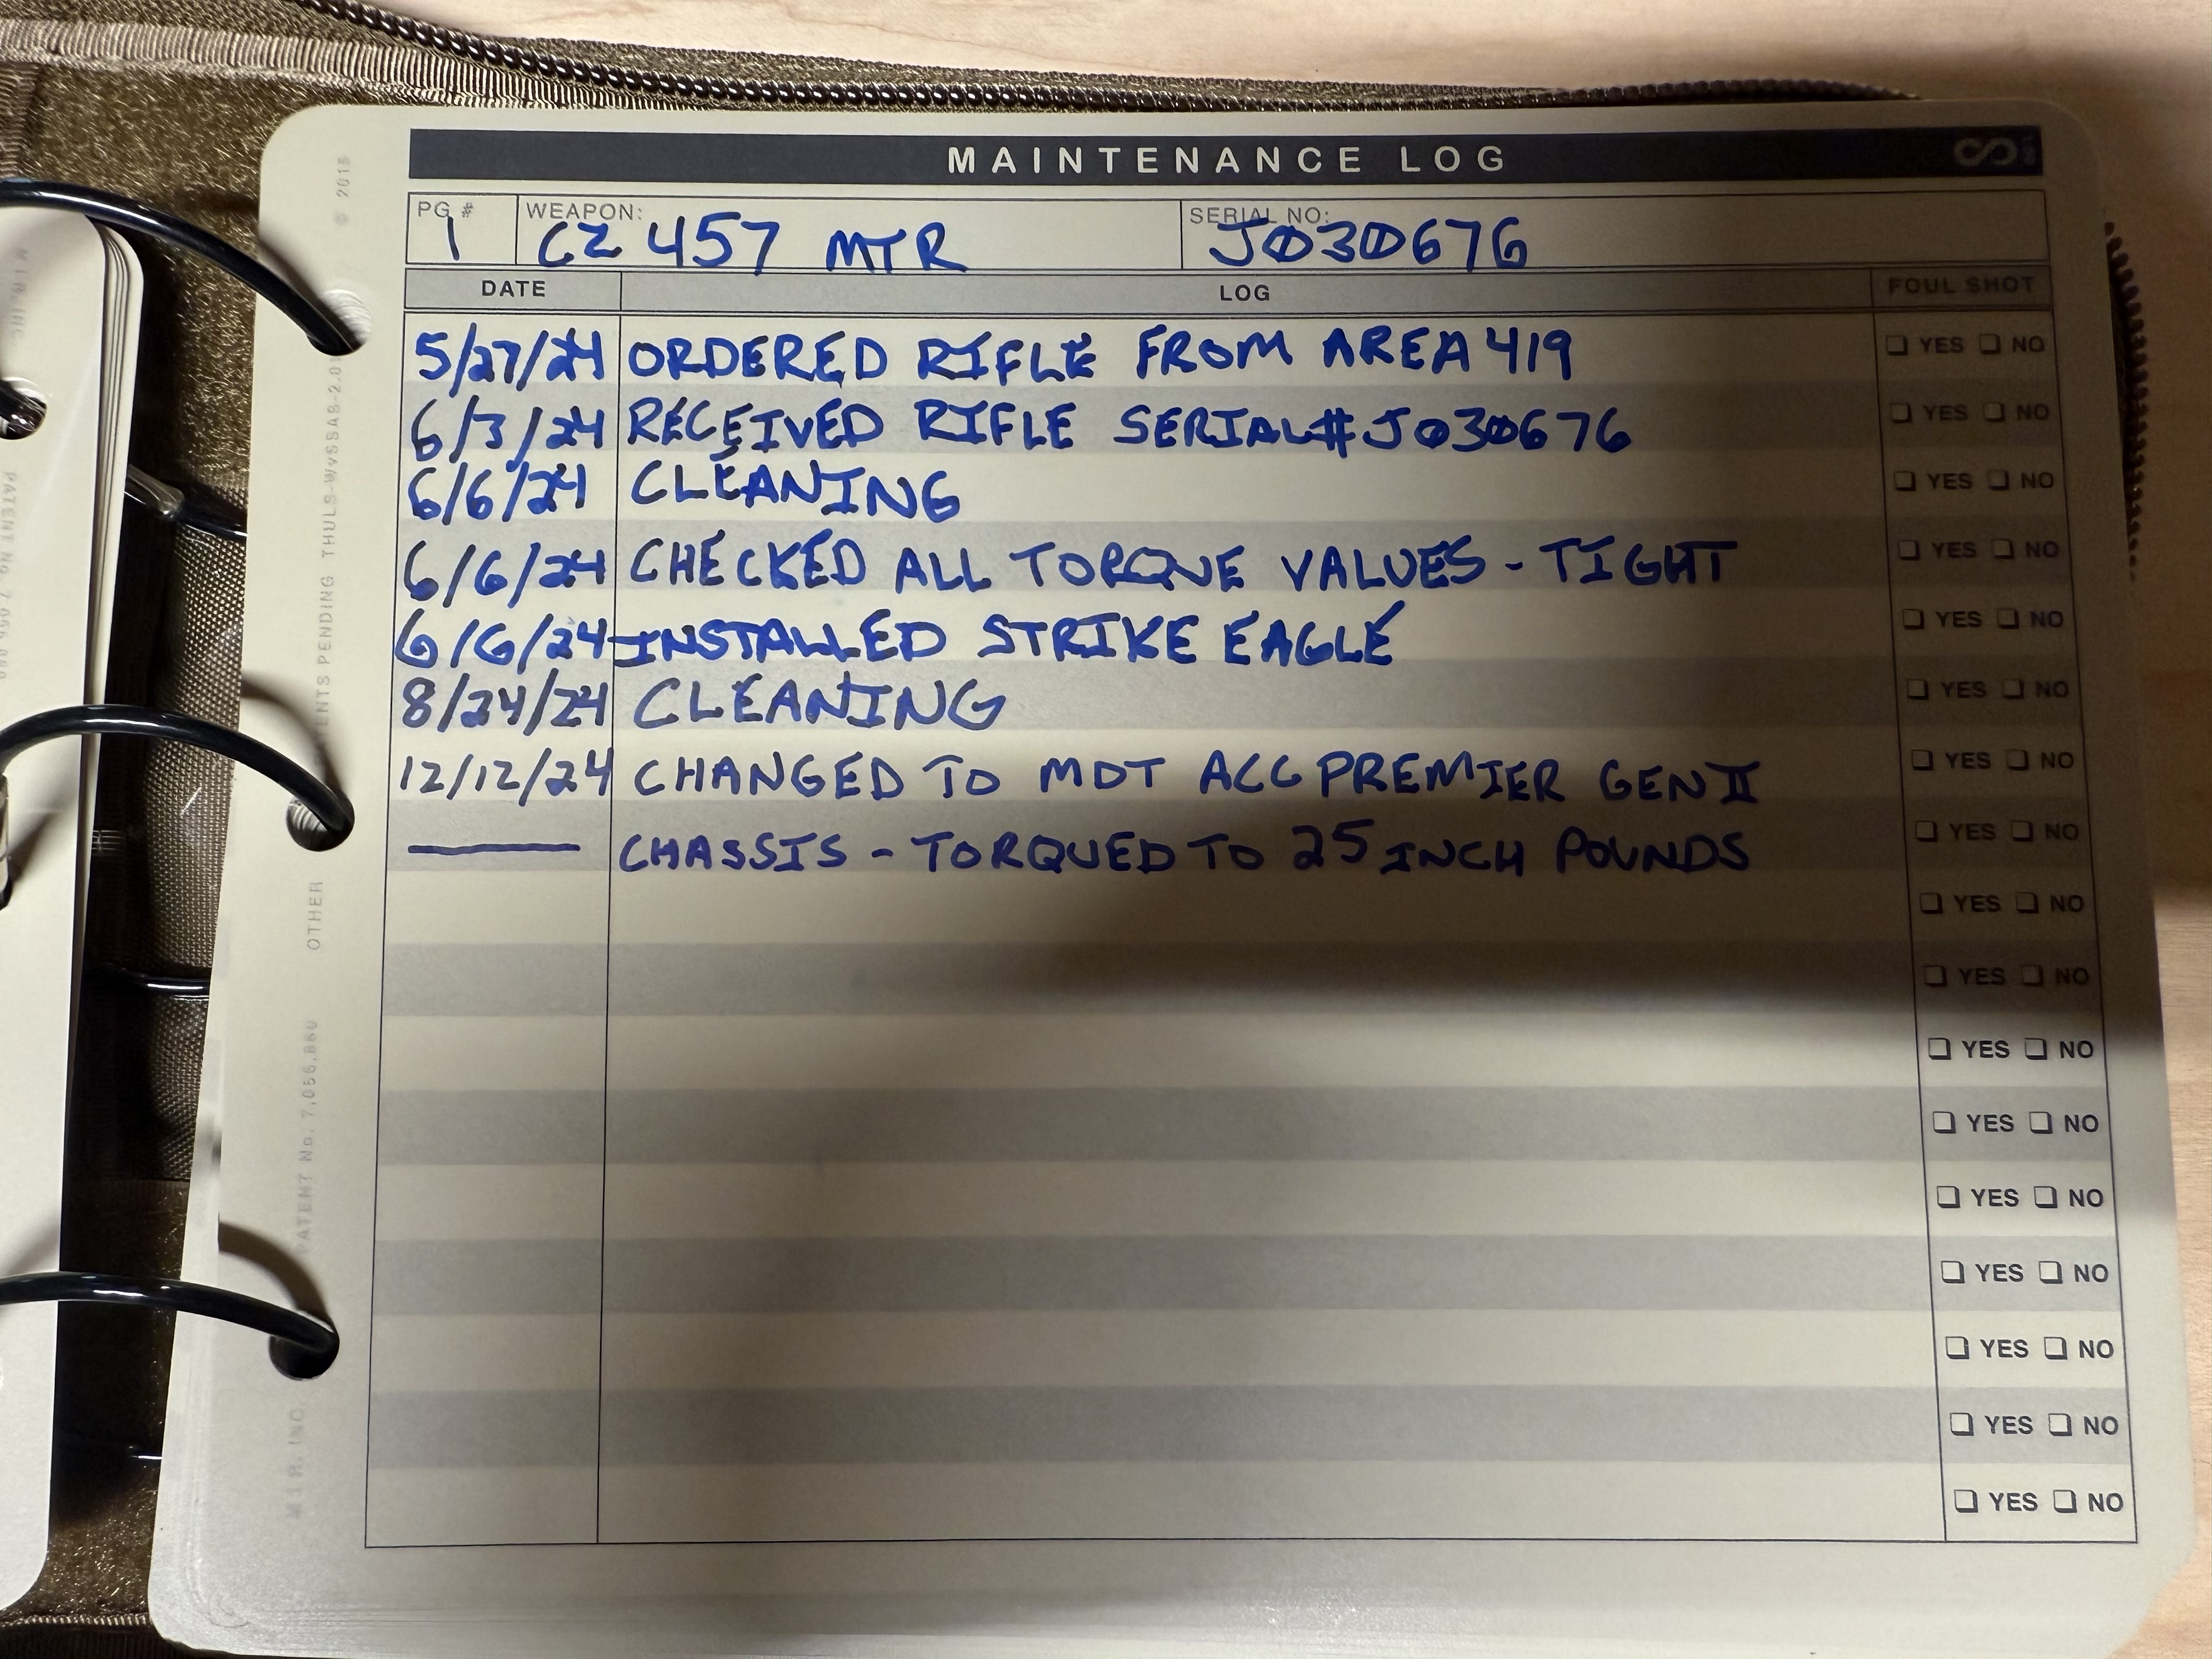 MAINTENANCE LOG
PG # 1 WEAPON: CZ 457 MTR SERIAL NO: J030676
DATE LOG FOUL SHOT
5/27/24 ORDERED RIFLE FROM AREA 419 YES NO
6/3/24 RECEIVED RIFLE SERIAL# J030676 YES NO
6/6/24 CLEANING YES NO
6/6/24 CHECKED ALL TORQUE VALUES - TIGHT YES NO
6/6/24 INSTALLED STRIKE EAGLE YES NO
8/24/24 CLEANING YES NO
12/12/24 CHANGED TO MDT ACC PREMIER GEN II YES NO
— CHASSIS - TORQUED TO 25 INCH POUNDS YES NO
YES NO
YES NO
YES NO
YES NO
YES NO
YES NO
YES NO
YES NO
YES NO
M I R, INC. PATENT No. 7,056,860 OTHER PATENTS PENDING © 2015